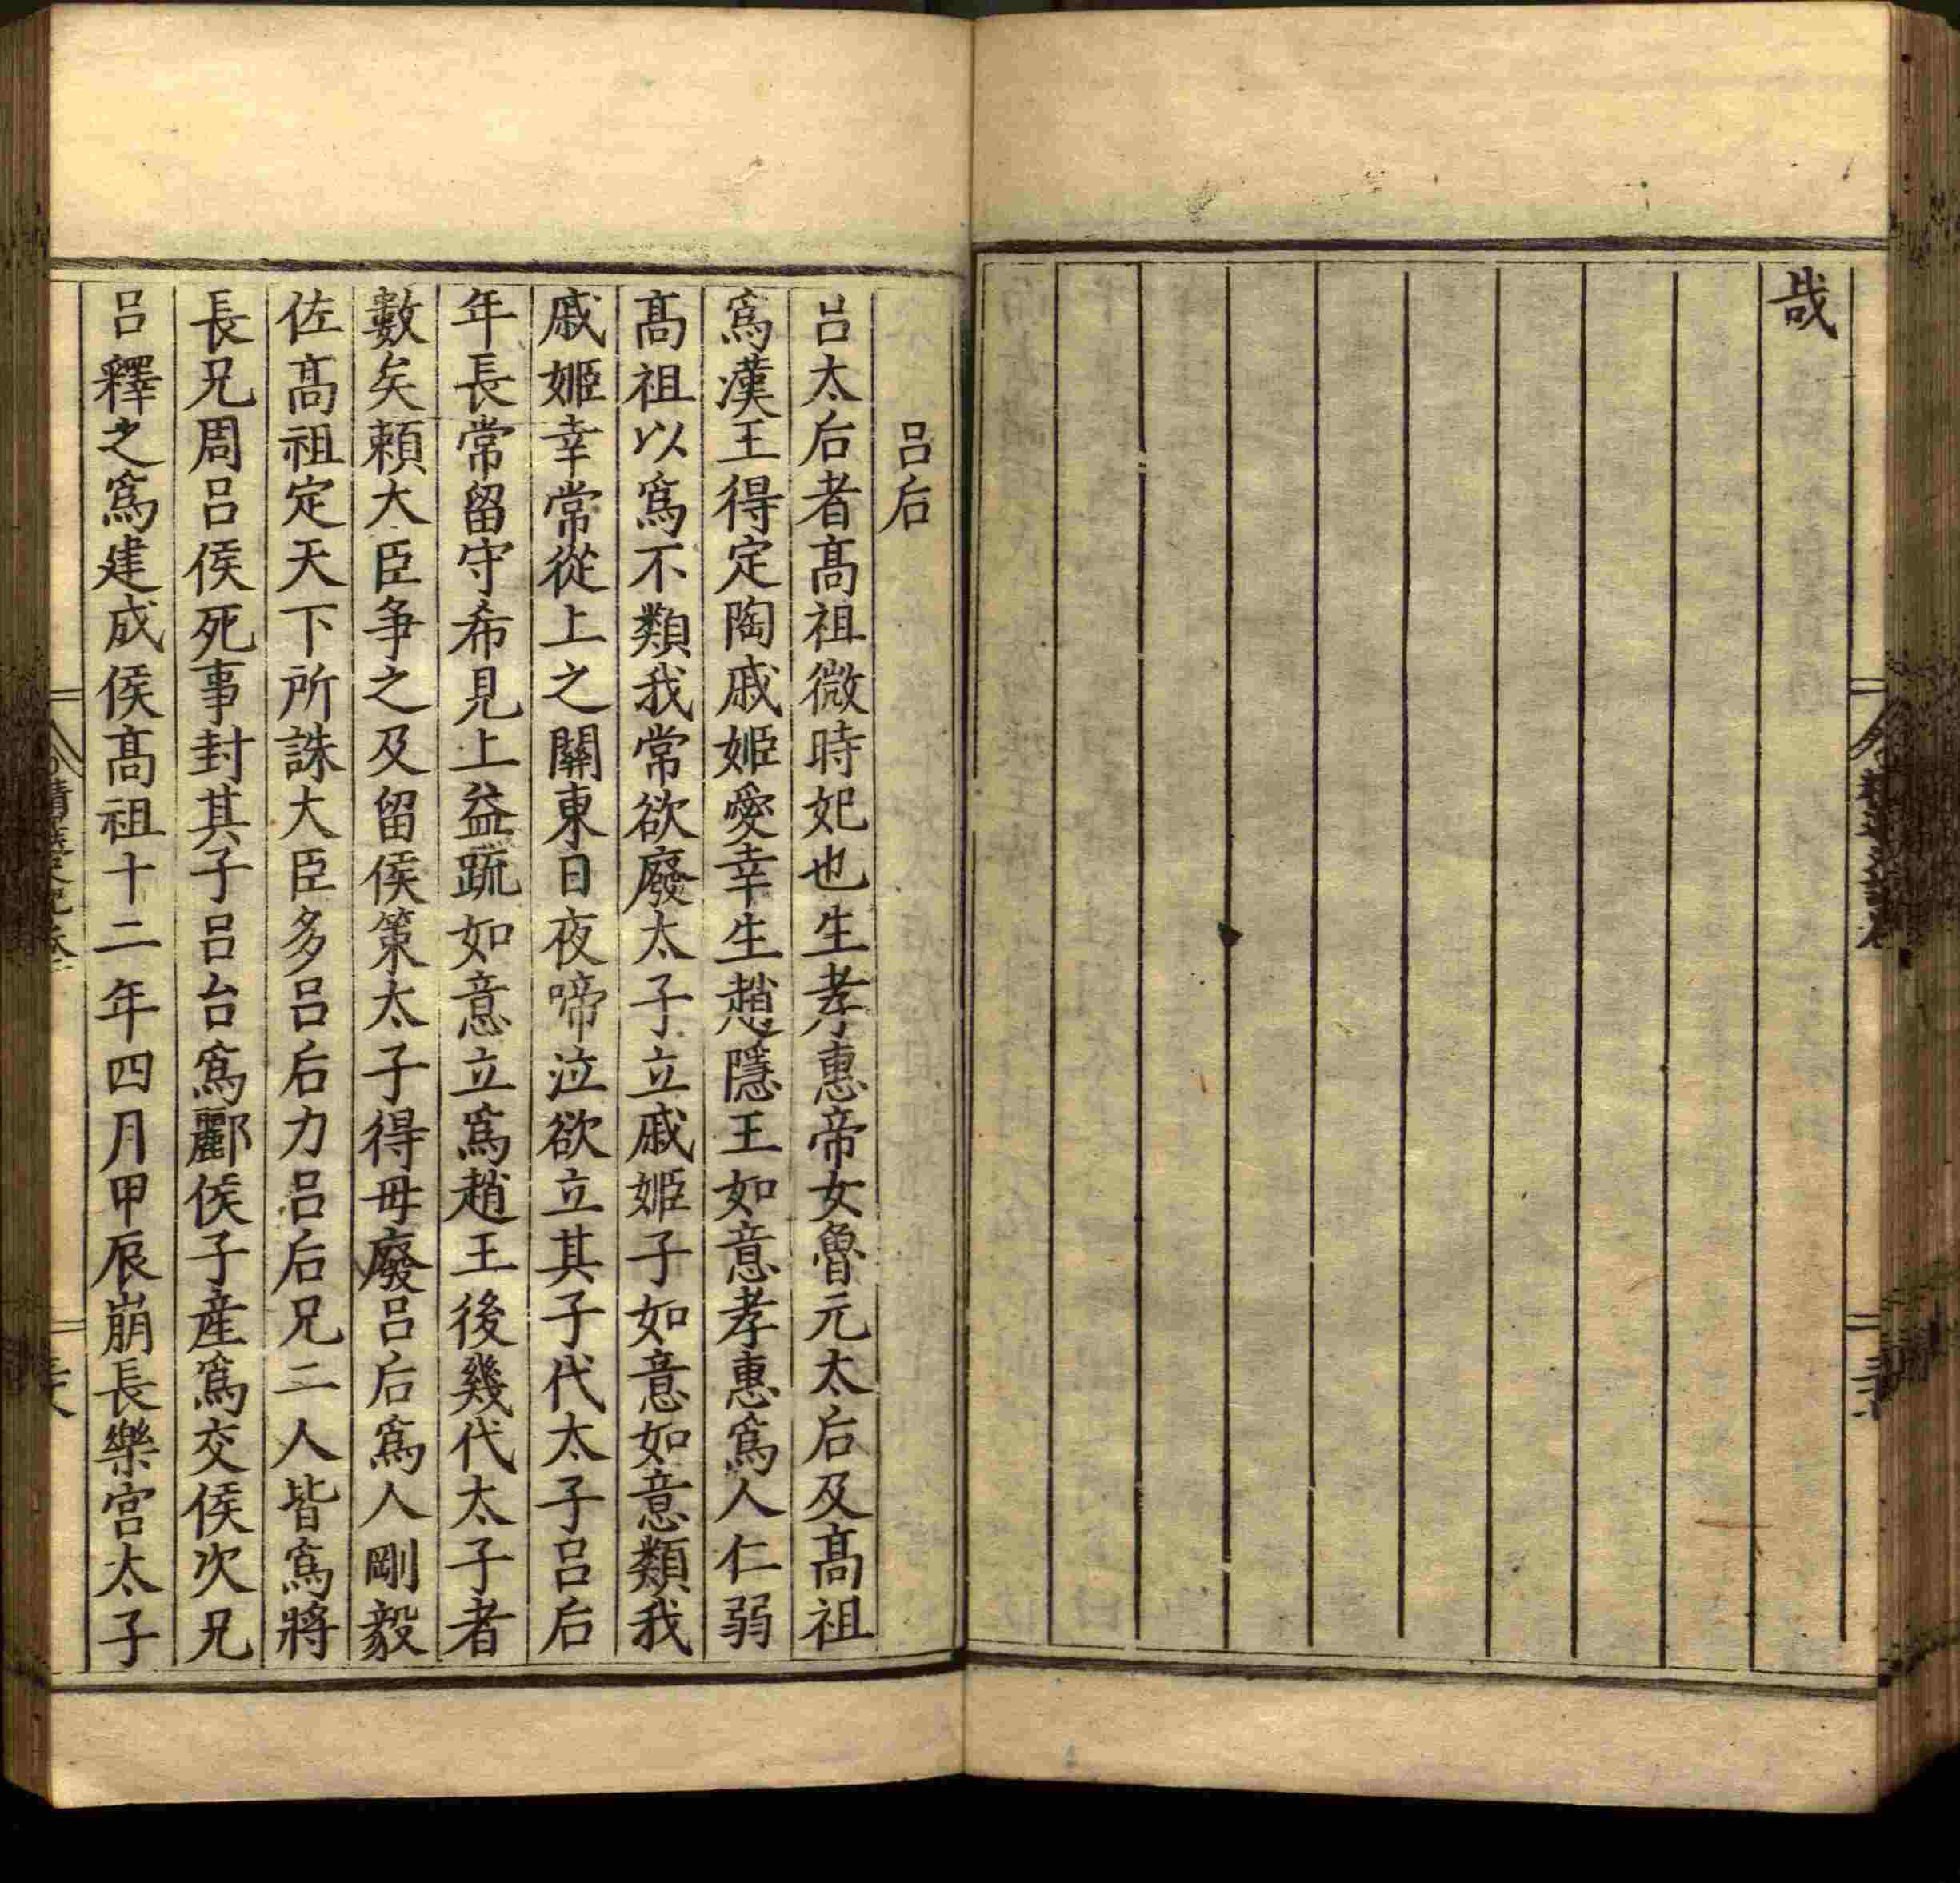 哉
吕后
吕太后者髙祖微時妃也生孝惠帝女魯元太后及髙祖
爲漢王得定陶戚姬愛幸生趙隱王如意孝惠爲人仁弱
髙祖以爲不類我常欲廢太子立戚姬子如意如意類我
戚姬幸常從上之關東日夜啼泣欲立其子代太子吕后
年長常留守希見上益疏如意立爲趙王後幾代太子者
數矣賴大臣争之及留侯策太子得毋廢吕后爲人剛毅
佐髙祖定天下所誅大臣多吕后力吕后兄二人皆爲將
長兄周吕侯死事封其子吕台爲酈侯子産爲交侯次兄
吕釋之爲建成侯髙祖十二年四月甲辰崩長樂宮太子